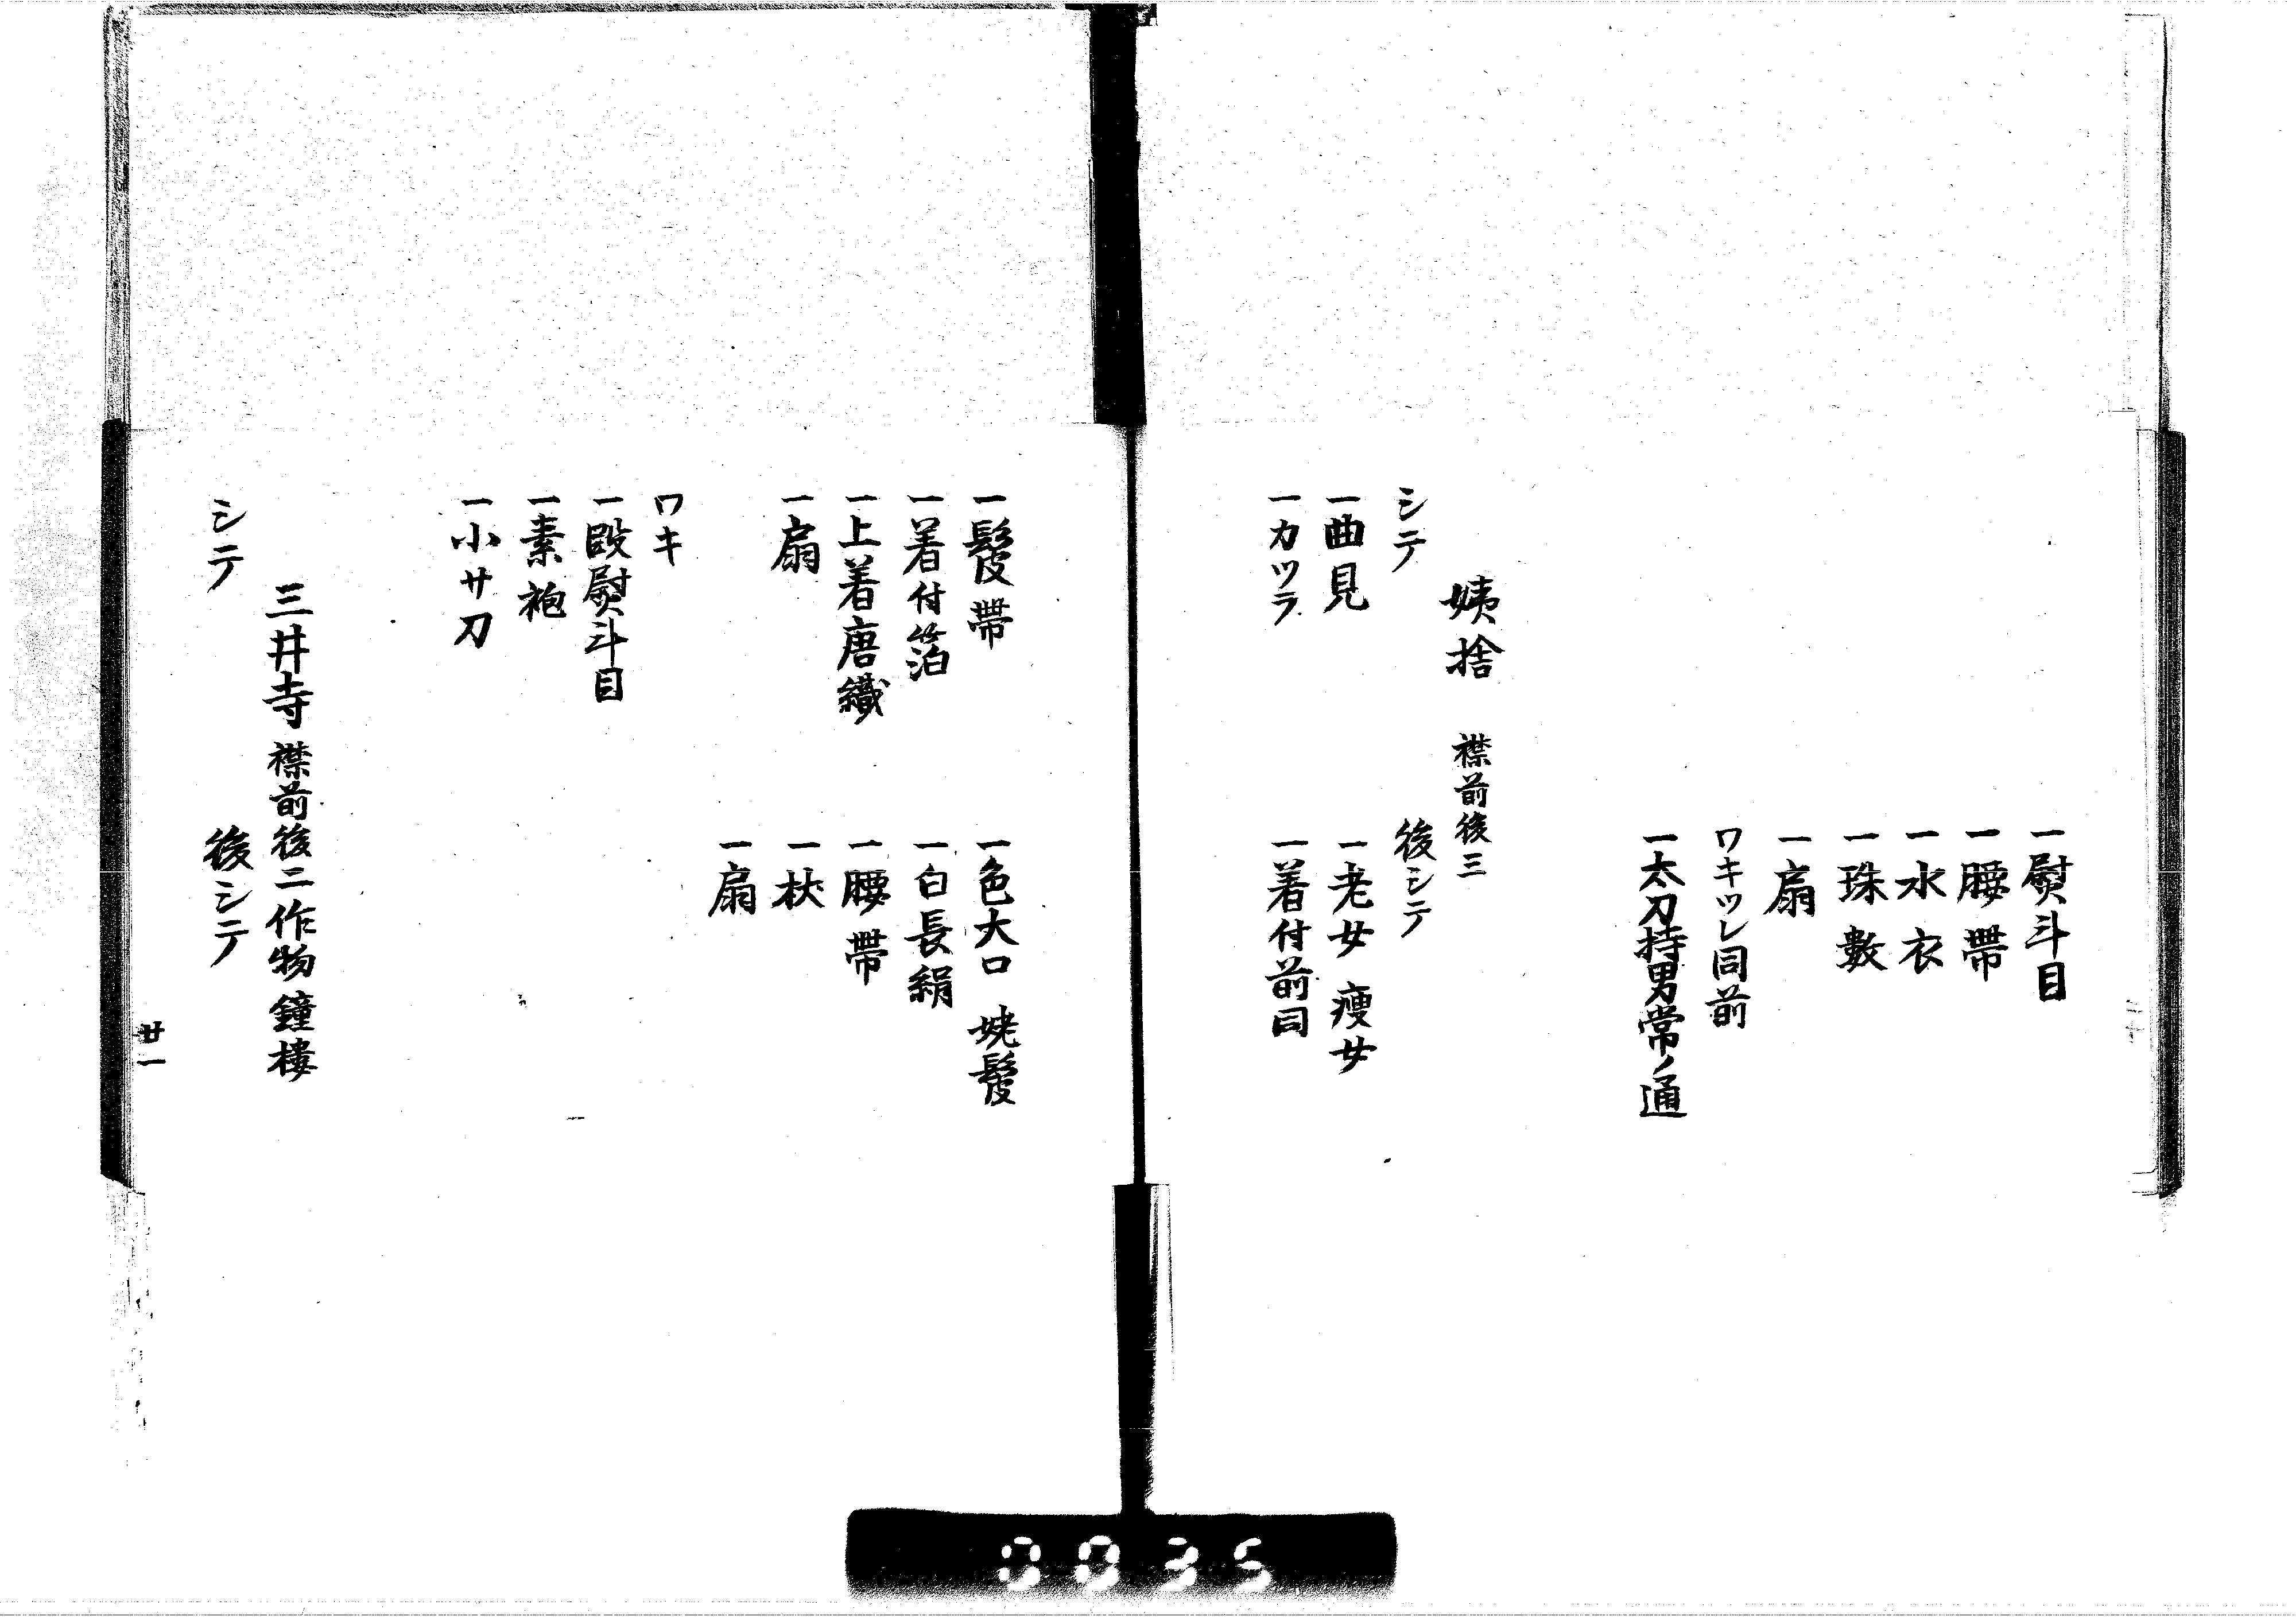 一熨斗目
一腰帶
一水衣
一珠數
一扇
ワキツレ同前
一太刀持男常ノ通
姨捨 襟前後三
シテ
後シテ
一曲見
一老女 痩女
一カツラ
一着付前同
一鬘帶
一色大口 姥鬘
一着付箔
一白長絹
一上着唐織
一腰帶
一扇
一杖
一扇
ワキ
一段熨斗目
一素袍
一小サ刀
三井寺 襟前後二作物鐘楼
シテ
後シテ
廿一
0035